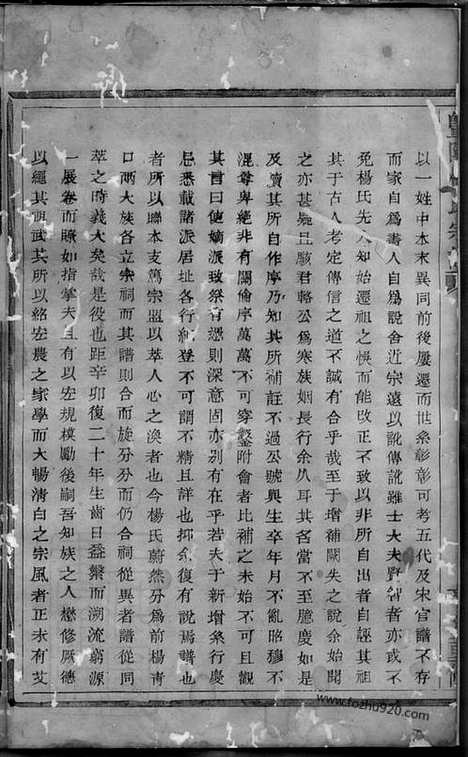 以一姓中本末異同前後屢遷而世系彰彰可考五代及宋官譜不存
而家自爲書人自爲說舍近宗遠以訛傳訛雖士大夫賢者亦或不
免楊氏先人知始遷祖之悞而能改正不致以非所自出者自誣其祖
其于古人考定傳信之道不誠有合乎哉至于增補闕失之說余始聞
之亦甚疑且駭君輅公爲寒族姻長行余爪耳其名當不至臆度如是
及讀其所自作序乃知其所補註不過公號與生卒年月不亂昭穆不
混尊卑絕非有關倫序萬萬不可穿鑿附會者比補之未始不可且觀
其言曰使嫡派致祭有憑則深意固亦別有在乎若夫于新增築行慶
忌悉載諸派居址各行細登不可謂不精且詳也抑余復有說焉譜也
者所以聯本支篤宗盟以萃人心之渙者也今楊氏蔚然分爲前楊靑
口兩大族各立宗祠而其譜則合而旋分分而仍合祠從異者譜從同
萃之時義大矣哉是役也距辛卯復二十年生齒日益繁而溯流窮源
一展卷而瞭如指掌夫且有以宏規模勵後嗣吾知族之人懋修厥德
以繩其祖武其所以紹宏農之家學而大暢清白之宗風者正未有艾
www.fozhu920.com